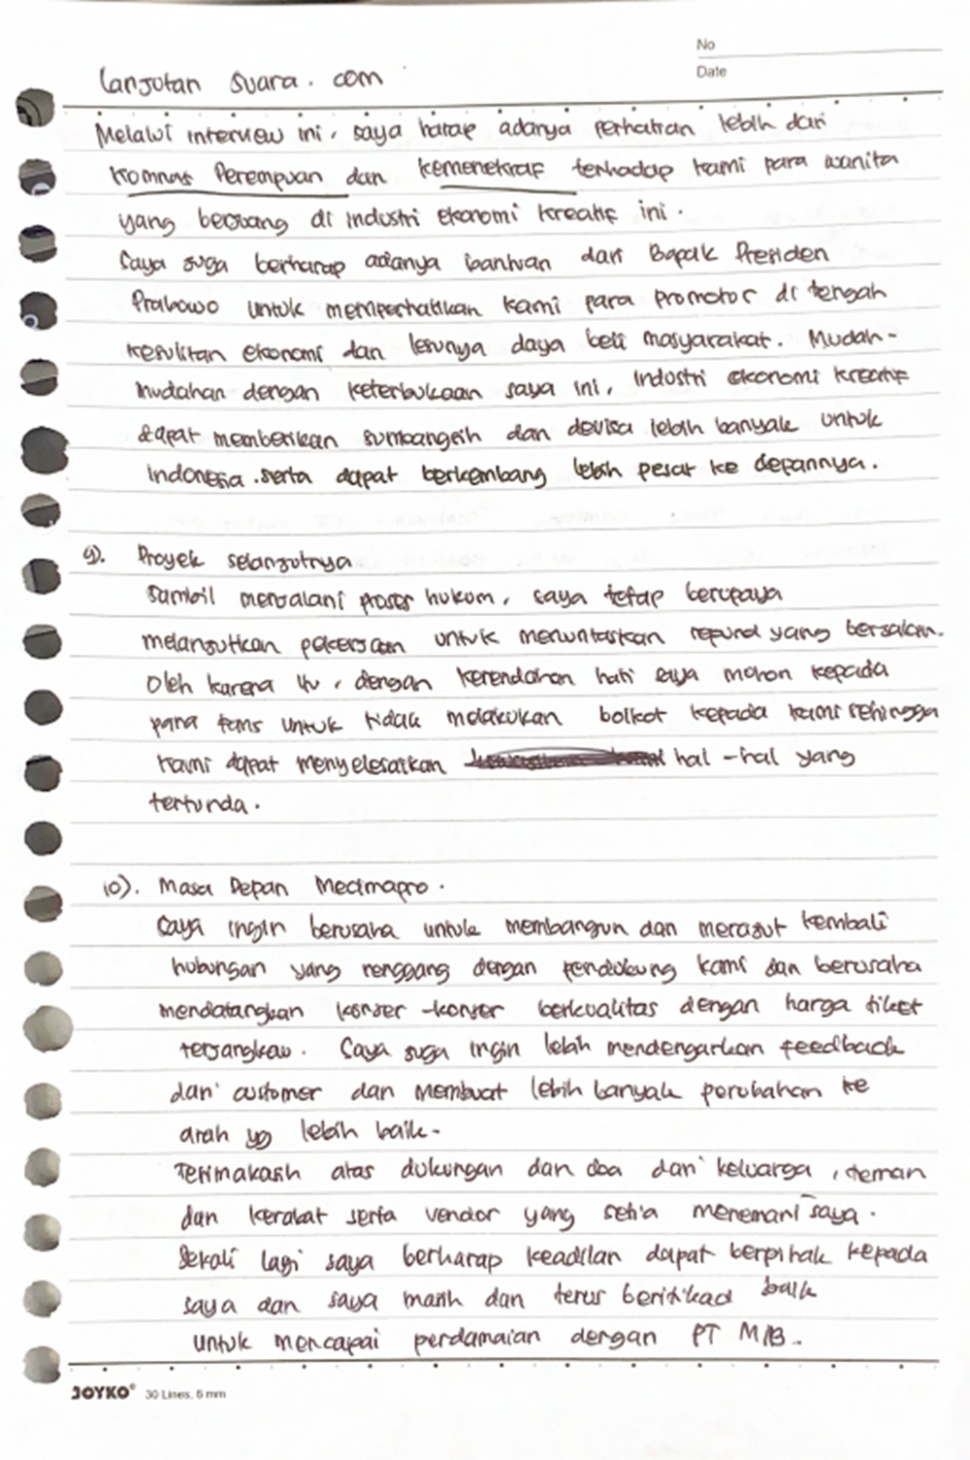 No
Date
Lanjutan Suara.com
Melalui interview ini, saya harap adanya perhatian lebih dari
Komnas Perempuan dan Kemenekraf terhadap kami para wanita
yang berjuang di industri ekonomi kreatif ini.
Saya juga berharap adanya bantuan dari Bapak Presiden
Prabowo untuk memperhatikan kami para promotor di tengah
kesulitan ekonomi dan lesunya daya beli masyarakat. Mudah-
mudahan dengan keterbukaan saya ini, industri ekonomi kreatif
dapat memberikan sumbangsih dan devisa lebih banyak untuk
Indonesia serta dapat berkembang lebih pesat ke depannya.
9). Proyek selanjutnya
Sambil menjalani proses hukum, saya tetap berupaya
melanjutkan pekerjaan untuk menuntaskan refund yang berjalan.
Oleh karena itu, dengan kerendahan hati saya mohon kepada
para fans untuk tidak melakukan boikot kepada kami sehingga
kami dapat menyelesaikan hal-hal yang
tertunda.
10). Masa Depan Mecimapro.
Saya ingin berusaha untuk membangun dan merajut kembali
hubungan yang renggang dengan pendukung kami dan berusaha
mendatangkan konser-konser berkualitas dengan harga tiket
terjangkau. Saya juga ingin lebih mendengarkan feedback
dari customer dan membuat lebih banyak perubahan ke
arah yg lebih baik.
Terimakasih atas dukungan dan doa dari keluarga, teman
dan kerabat serta vendor yang setia menemani saya.
Sekali lagi saya berharap keadilan dapat berpihak kepada
saya dan saya masih dan terus beritikad baik
untuk mencapai perdamaian dengan PT MIB.
JOYKO® 30 Lines, 6 mm